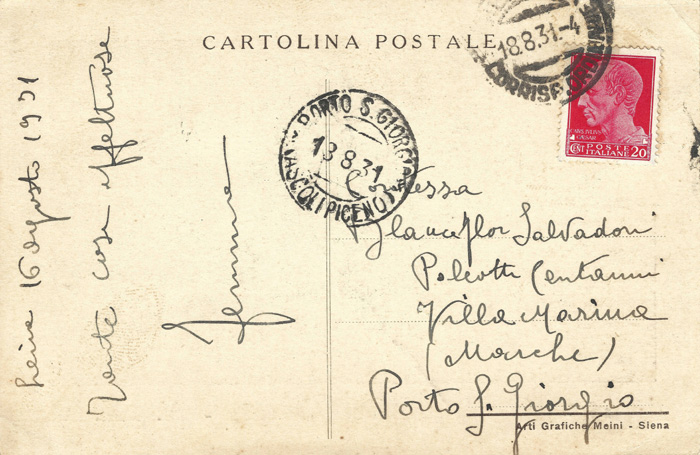 CARTOLINA POSTALE
16 agosto 1931
Tante cose affettuose
Gemma
PORTO S. GIORGIO
18.8.31
(ASCOLI PICENO)
18.8.31.-4
CORRISP.
CAIUS IULIUS
CAESAR
CENT 20
POSTE
ITALIANE
Contessa
Glauceflor Salvadori
Paleotti Centanni
Villa Marina
(Marche)
Porto S. Giorgio
Arti Grafiche Meini - Siena